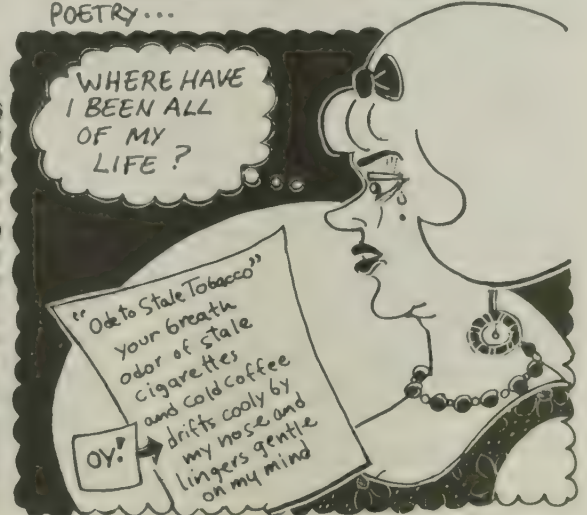 POETRY...
WHERE HAVE
I BEEN ALL
OF MY
LIFE?
"Ode to Stale Tobacco"
your breath
odor of stale
cigarettes
and cold coffee
drifts cooly by
my nose and
lingers gentle
on my mind
OY!